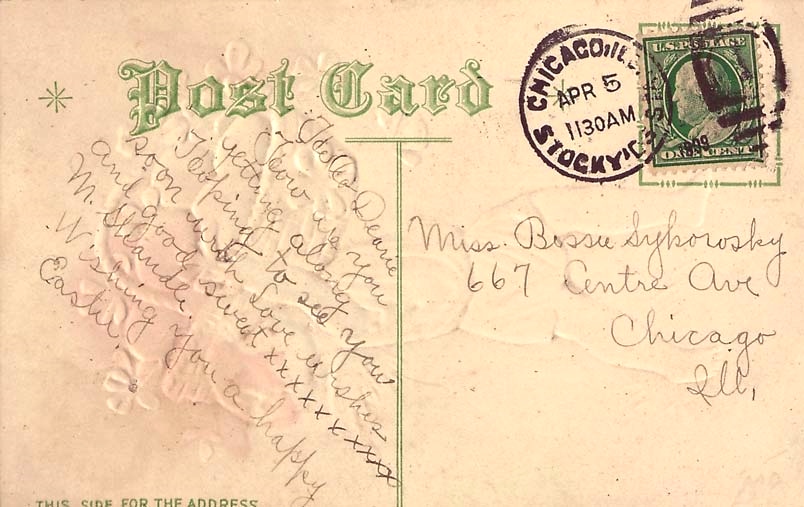 Post Card
CHICAGO, ILL.
APR 5
1130 AM
1909
STOCK Y'DS STA
U.S. POSTAGE
ONE CENT
Hello Dearie
How are you
getting along
Hoping to see you
soon with love wishes
and good sweet xxxxxxxxxxx
M.
Wishing you a happy
Easter.
Miss. Bessie Sykorosky
667 Centre Ave
Chicago
Ill,
THIS SIDE FOR THE ADDRESS